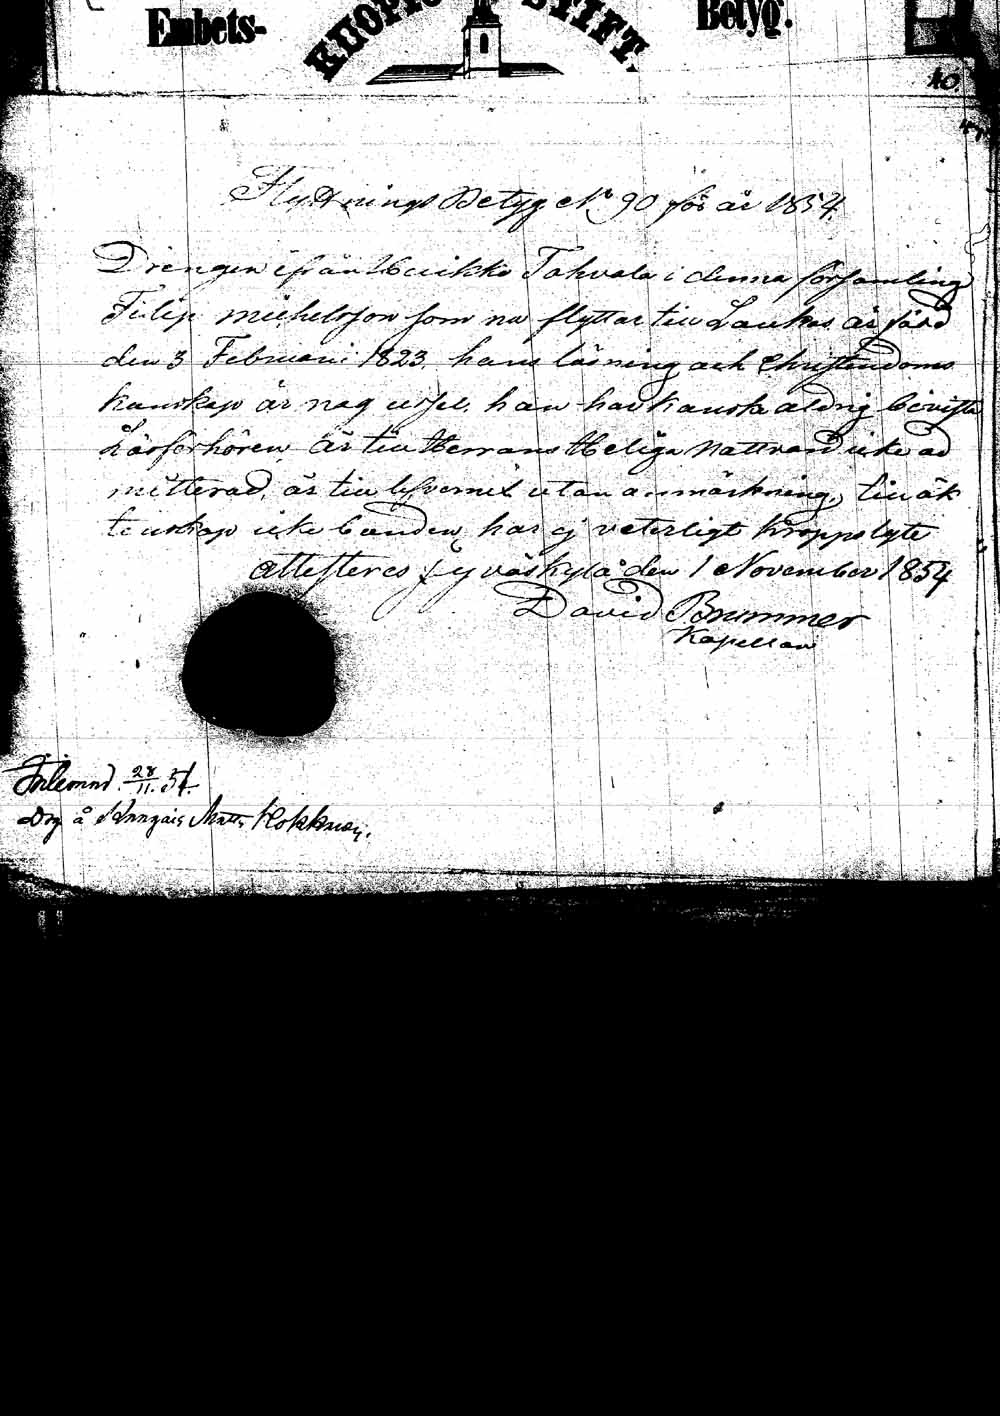 Embets- KUOPIO STIFT. Betyg.
40.
Flyttnings Betyg No 90 för år 1854.
Drengen ifrån Huikko Tahvala i denna församling
Filip Michelsson som nu flyttar till Laukas är född
den 3 Februari 1823, hans läsning och Christendoms
kunskap är nog ussel, han har kanske aldrig bevista
Läsförhören, är till Herrans Heliga Nattvard icke ad
mitterad, är till lefvernet utan anmärkning, till äk
tenskap icke bunden, har ej veterligt kroppslyte
attesteres Jyväskylä den 1 November 1854
David Brummer
Kapellan
Inlemnd. 28/11. 54.
Drg å Matts Kokkness.